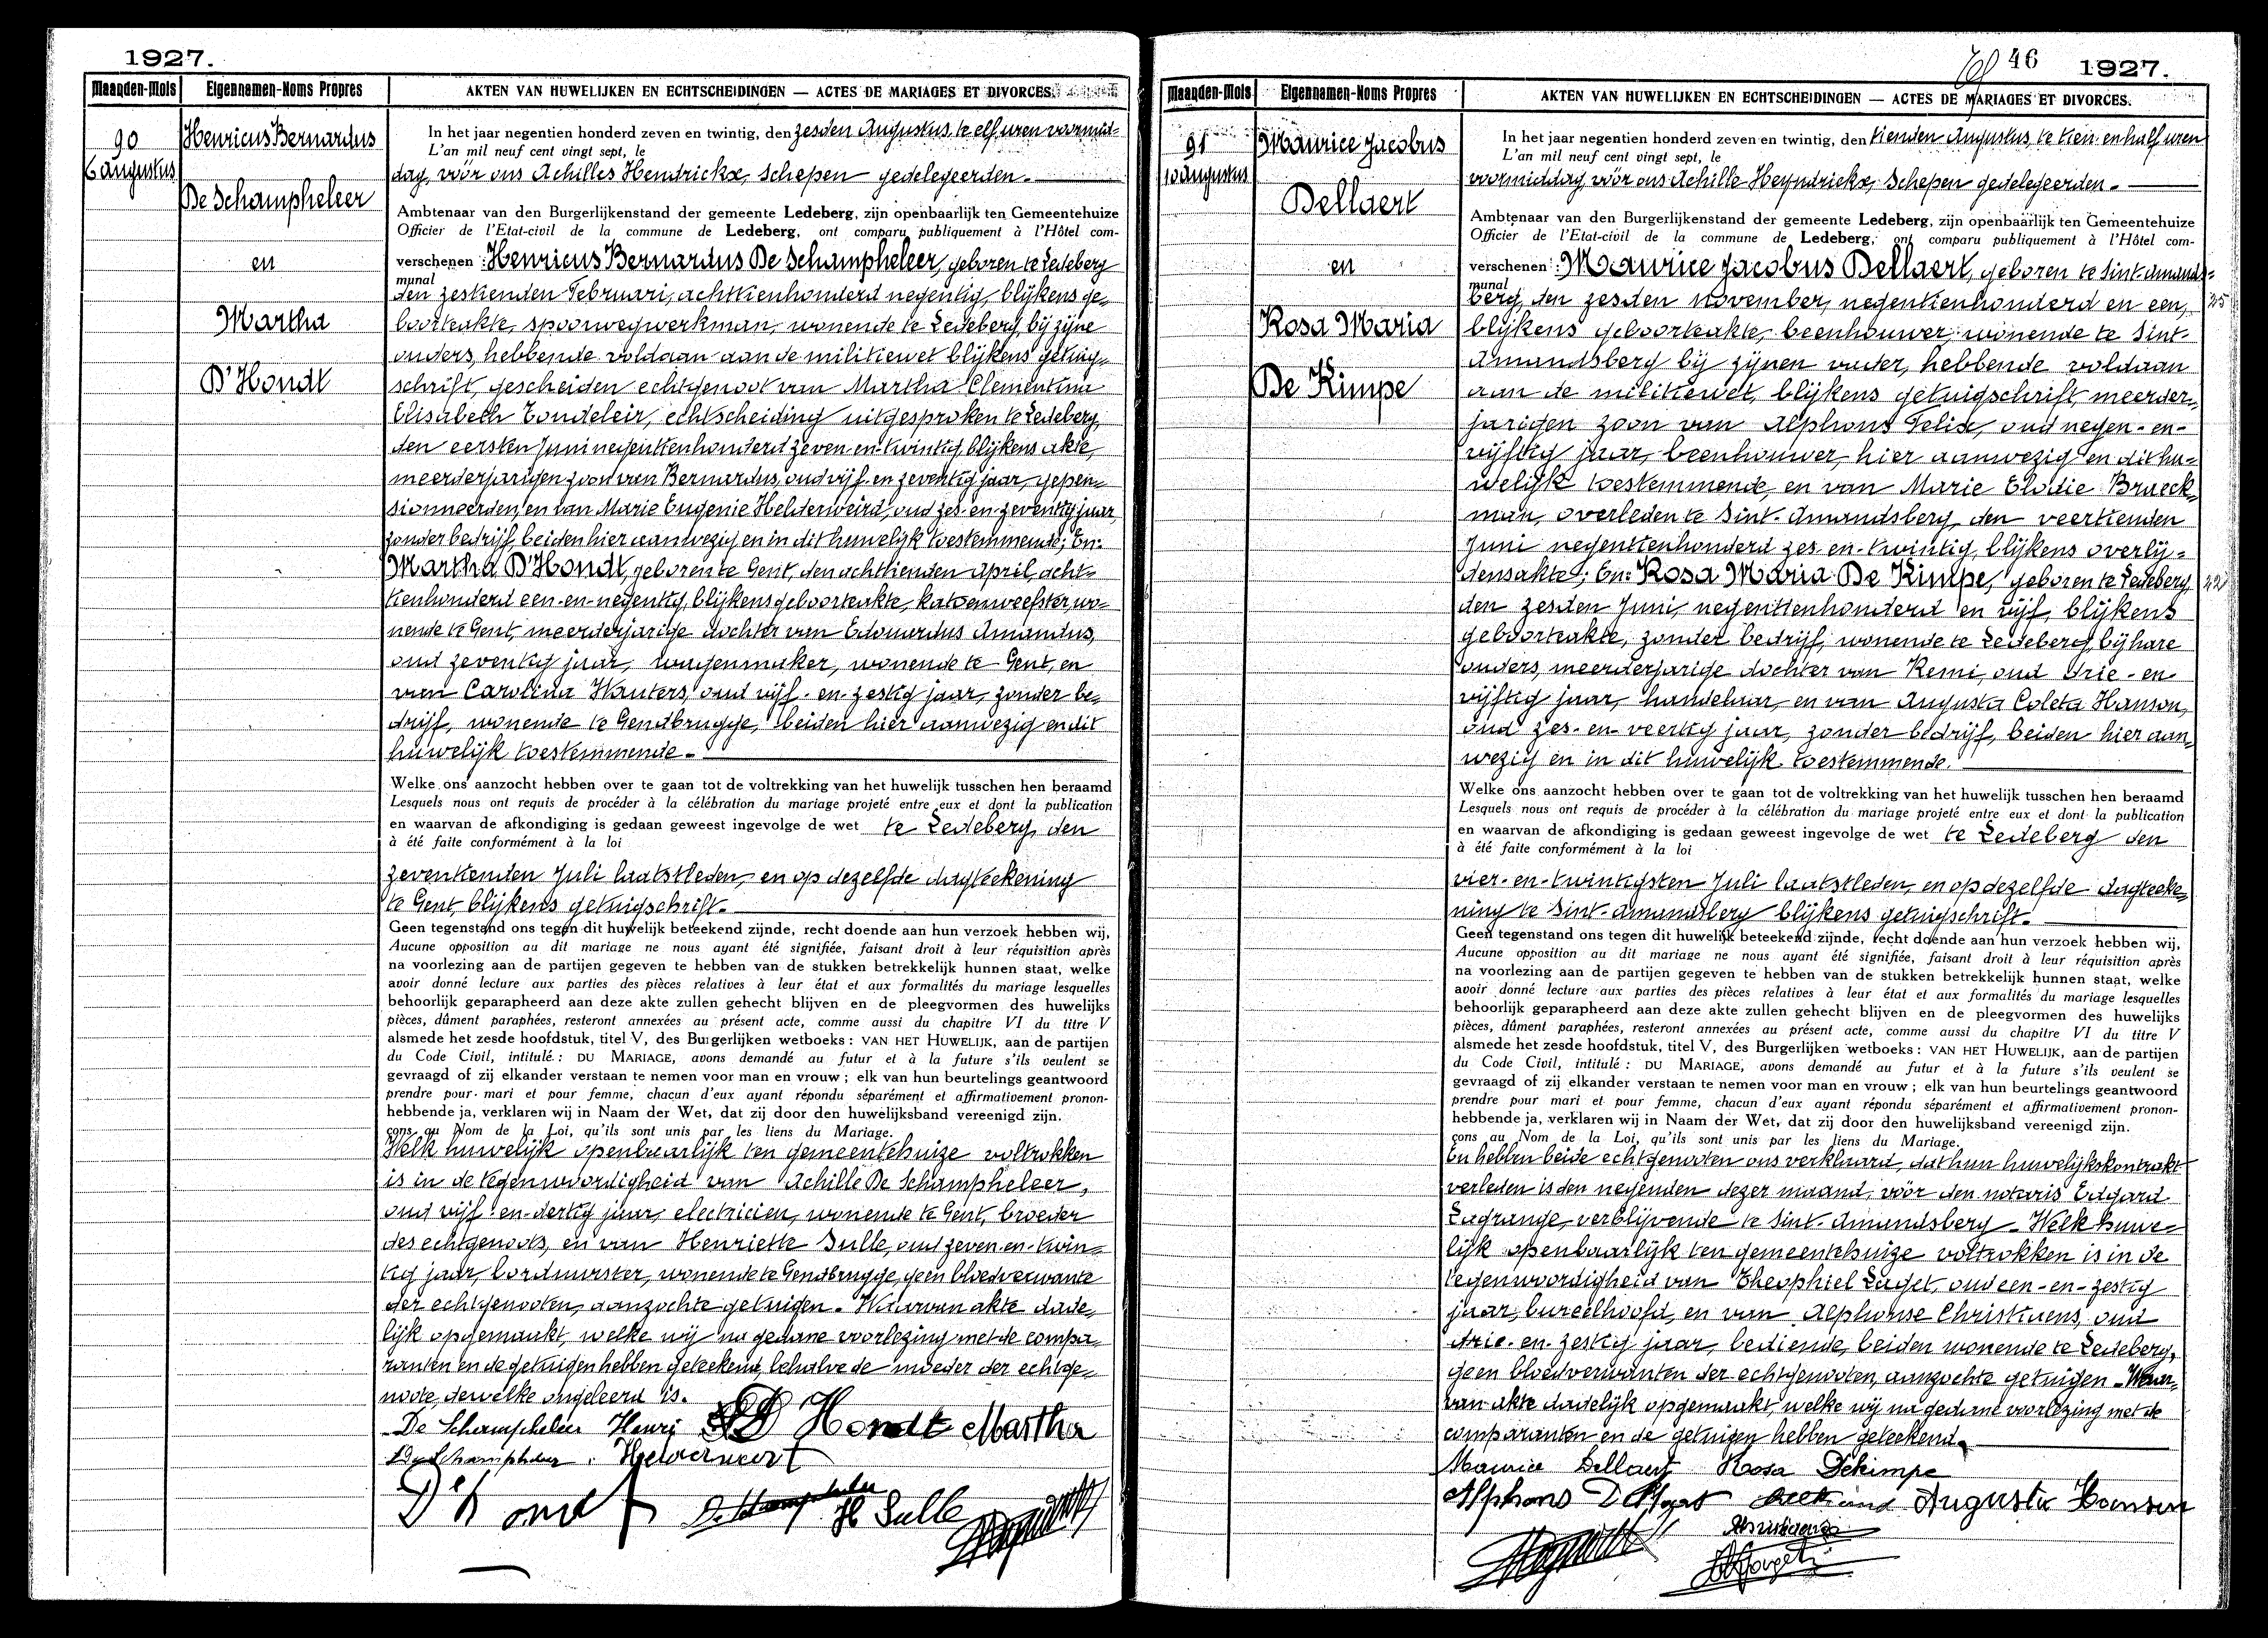 1927.
Maanden-Mois
Eigennamen-Noms Propres
AKTEN VAN HUWELIJKEN EN ECHTSCHEIDINGEN — ACTES DE MARIAGES ET DIVORCES.
90
6 augustus
Henricus Bernardus
De Schampheleer
en
Martha
D'Hondt
In het jaar negentien honderd zeven en twintig, den zesden Augustus, te elf uren voormid=
L'an mil neuf cent vingt sept, le
dag, vóór ons Achilles Hendrickx, Schepen gedelegeerden.
Ambtenaar van den Burgerlijkenstand der gemeente Ledeberg, zijn openbaarlijk ten Gemeentehuize
Officier de l'Etat-civil de la commune de Ledeberg, ont comparu publiquement à l'Hôtel com-
verschenen : Henricus Bernardus De Schampheleer, geboren te Ledeberg
munal
den zestienden Februari, achttienhonderd negentig, blijkens ge=
boorteakte, spoorwegwerkman, wonende te Ledeberg, bij zijne
ouders, hebbende voldaan aan de militiewet blijkens getuig=
schrift, gescheiden echtgenoot van Martha Clementina
Elisabeth Tondeleir, echtscheiding uitgesproken te Ledeberg,
den eersten Juni negentienhonderd zeven-en-twintig, blijkens akte,
meerderjarigen zoon van Bernardus, oud vijf-en-zeventig jaar, gepen=
sionneerden, en van Marie Eugenie Helderweird, oud zes-en-zeventig jaar,
zonder bedrijf, beiden hier aanwezig en in dit huwelijk toestemmende; En:
Martha D'Hondt, geboren te Gent, den achttienden April, acht=
tienhonderd een-en-negentig, blijkens geboorteakte, katoenweefster, wo=
nende te Gent, meerderjarige dochter van Edouardus Amandus,
oud zeventig jaar, wagenmaker, wonende te Gent, en
van Carolina Wauters, oud vijf-en-zestig jaar, zonder be=
drijf, wonende te Gendbrugge, beiden hier aanwezig en dit
huwelijk toestemmende.
Welke ons aanzocht hebben over te gaan tot de voltrekking van het huwelijk tusschen hen beraamd
Lesquels nous ont requis de procéder à la célébration du mariage projeté entre eux et dont la publication
en waarvan de afkondiging is gedaan geweest ingevolge de wet te Ledeberg, den
à été faite conformément à la loi
zeventienden Juli laatstleden, en op dezelfde dagteekening
te Gent, blijkens getuigschrift.
Geen tegenstand ons tegen dit huwelijk beteekend zijnde, recht doende aan hun verzoek hebben wij,
Aucune opposition au dit mariage ne nous ayant été signifiée, faisant droit à leur réquisition après
na voorlezing aan de partijen gegeven te hebben van de stukken betrekkelijk hunnen staat, welke
avoir donné lecture aux parties des pièces relatives à leur état et aux formalités du mariage lesquelles
behoorlijk geparapheerd aan deze akte zullen gehecht blijven en de pleegvormen des huwelijks
pièces, dûment paraphées, resteront annexées au présent acte, comme aussi du chapitre VI du titre V
alsmede het zesde hoofdstuk, titel V, des Burgerlijken wetboeks : VAN HET HUWELIJK, aan de partijen
du Code Civil, intitulé : DU MARIAGE, avons demandé au futur et à la future s'ils veulent se
gevraagd of zij elkander verstaan te nemen voor man en vrouw ; elk van hun beurtelings geantwoord
prendre pour mari et pour femme, chacun d'eux ayant répondu séparément et affirmativement pronon-
hebbende ja, verklaren wij in Naam der Wet, dat zij door den huwelijksband vereenigd zijn.
çons au Nom de la Loi, qu'ils sont unis par les liens du Mariage.
Welk huwelijk openbaarlijk ten gemeentehuize voltrokken
is in de tegenwoordigheid van Achille De Schampheleer,
oud vijf-en-dertig jaar, electricien, wonende te Gent, broeder
des echtgenoots, en van Henriette Sulle, oud zeven-en-twin=
tig jaar, borduurster, wonende te Gendbrugge, geen bloedverwante
der echtgenooten, aanzochte getuigen. Waarvan akte dade=
lijk opgemaakt, welke wij na gedane voorlezing met de compa=
ranten en de getuigen hebben geteekend, behalve de moeder der echtge=
noote, dewelke ongeleerd is.
De Schampheleer Henri D Hondt Martha
De Schampheleer Helderweirt
D'Hondt De Schampheleer H Sulle
46
1927.
Maanden-Mois
Eigennamen-Noms Propres
AKTEN VAN HUWELIJKEN EN ECHTSCHEIDINGEN — ACTES DE MARIAGES ET DIVORCES.
91
10 augustus
Maurice Jacobus
Dellaert
en
Rosa Maria
De Kimpe
In het jaar negentien honderd zeven en twintig, den tienden Augustus, te tien en half uren
L'an mil neuf cent vingt sept, le
voormiddag, vóór ons Achille Heyndrickx, Schepen gedelegeerden.
Ambtenaar van den Burgerlijkenstand der gemeente Ledeberg, zijn openbaarlijk ten Gemeentehuize
Officier de l'Etat-civil de la commune de Ledeberg, ont comparu publiquement à l'Hôtel com-
verschenen : Maurice Jacobus Dellaert, geboren te Sint-Amands=
munal
berg, den zesden November, negentienhonderd en een, 25
blijkens geboorteakte, beenhouwer, wonende te Sint-
Amandsberg bij zijnen vader, hebbende voldaan
aan de militiewet, blijkens getuigschrift, meerder=
jarigen zoon van Alphons Felix, oud negen-en-
vijftig jaar, beenhouwer, hier aanwezig en dit hu=
welijk toestemmende, en van Marie Elodie Braeck=
man, overleden te Sint-Amandsberg, den veertienden
Juni negentienhonderd zes-en-twintig, blijkens overlij=
densakte; En: Rosa Maria De Kimpe, geboren te Ledeberg, 22
den zesden Juni, negentienhonderd en vijf, blijkens
geboorteakte, zonder bedrijf, wonende te Ledeberg, bij hare
ouders, meerderjarige dochter van Remi, oud drie-en
vijftig jaar, handelaar, en van Augusta Coleta Hanson,
oud zes-en-veertig jaar, zonder bedrijf, beiden hier aan=
wezig en in dit huwelijk toestemmende.
Welke ons aanzocht hebben over te gaan tot de voltrekking van het huwelijk tusschen hen beraamd
Lesquels nous ont requis de procéder à la célébration du mariage projeté entre eux et dont la publication
en waarvan de afkondiging is gedaan geweest ingevolge de wet te Ledeberg den
à été faite conformément à la loi
vier-en-twintigsten Juli laatstleden, en op dezelfde dagteeke=
ning te Sint-Amandsberg blijkens getuigschrift.
Geen tegenstand ons tegen dit huwelijk beteekend zijnde, recht doende aan hun verzoek hebben wij,
Aucune opposition au dit mariage ne nous ayant été signifiée, faisant droit à leur réquisition après
na voorlezing aan de partijen gegeven te hebben van de stukken betrekkelijk hunnen staat, welke
avoir donné lecture aux parties des pièces relatives à leur état et aux formalités du mariage lesquelles
behoorlijk geparapheerd aan deze akte zullen gehecht blijven en de pleegvormen des huwelijks
pièces, dûment paraphées, resteront annexées au présent acte, comme aussi du chapitre VI du titre V
alsmede het zesde hoofdstuk, titel V, des Burgerlijken wetboeks : VAN HET HUWELIJK, aan de partijen
du Code Civil, intitulé : DU MARIAGE, avons demandé au futur et à la future s'ils veulent se
gevraagd of zij elkander verstaan te nemen voor man en vrouw ; elk van hun beurtelings geantwoord
prendre pour mari et pour femme, chacun d'eux ayant répondu séparément et affirmativement pronon-
hebbende ja, verklaren wij in Naam der Wet, dat zij door den huwelijksband vereenigd zijn.
çons au Nom de la Loi, qu'ils sont unis par les liens du Mariage.
En hebben beide echtgenooten ons verklaard, dat hun huwelijkskontrakt
verleden is den negenden dezer maand, vóór den notaris Edgard
Lagrange, verblijvende te Sint-Amandsberg. Welk huwe=
lijk openbaarlijk ten gemeentehuize voltrokken is in de
tegenwoordigheid van Theophiel Laget, oud een-en-zestig
jaar, bureelhoofd, en van Alphonse Christiaens, oud
drie-en-zestig jaar, bediende, beiden wonende te Ledeberg,
geen bloedverwanten der echtgenooten, aanzochte getuigen. Waar=
van akte dadelijk opgemaakt, welke wij na gedane voorlezing met de
comparanten en de getuigen hebben geteekend.
Maurice Dellaert Rosa Dekimpe
Alphons Dellaert Augusta Hanson